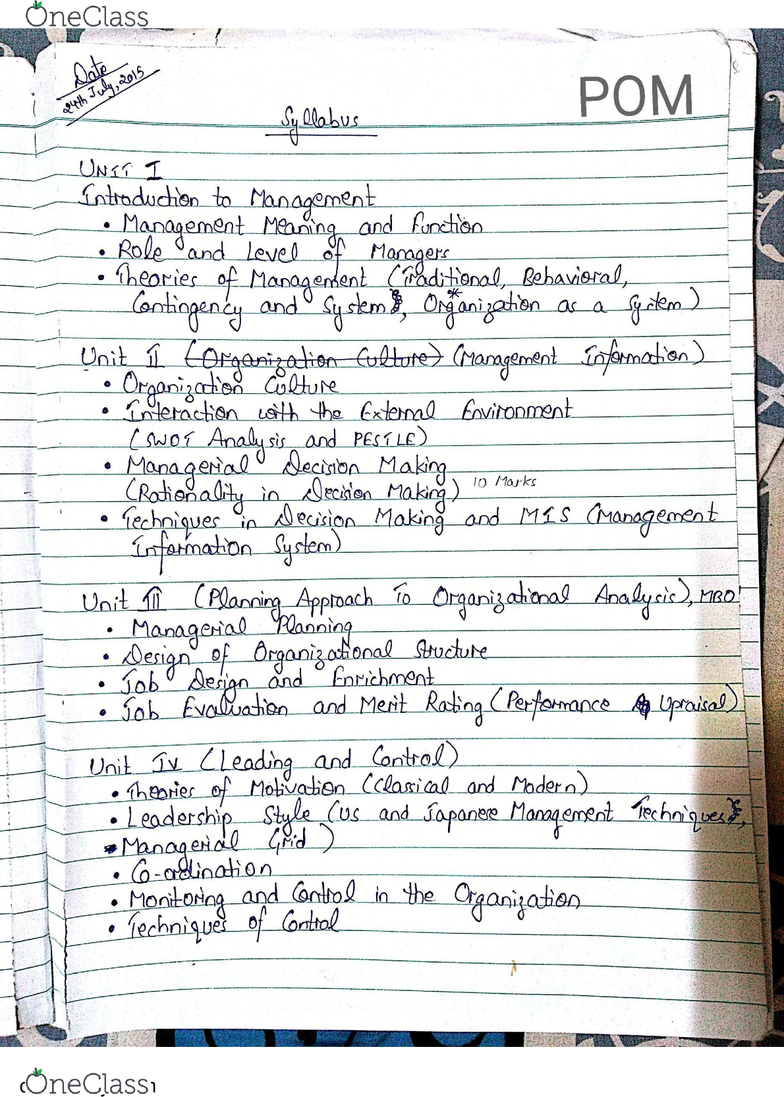 OneClass
Date
24th July, 2015
POM
Syllabus
UNIT I
Introduction to Management
• Management Meaning and function
• Role and Level of Managers
• Theories of Management (Traditional, Behavioral,
Contingency and System, Organization as a System)
Unit II (Organization Culture) (Management Information)
• Organization Culture
• Interaction with the External Environment
(SWOT Analysis and PESTLE)
• Managerial Decision Making
(Rationality in Decision Making) 10 Marks
• Techniques in Decision Making and MIS (Management
Information System)
Unit III (Planning Approach To Organizational Analysis), MBO
• Managerial Planning
• Design of Organizational Structure
• Job Design and Enrichment
• Job Evaluation and Merit Rating (Performance Upraisal)
Unit IV (Leading and Control)
• Theories of Motivation (Classical and Modern)
• Leadership Style (US and Japanese Management Techniques,
Managerial Grid)
• Co-ordination
• Monitoring and Control in the Organization
• Techniques of Control
OneClass